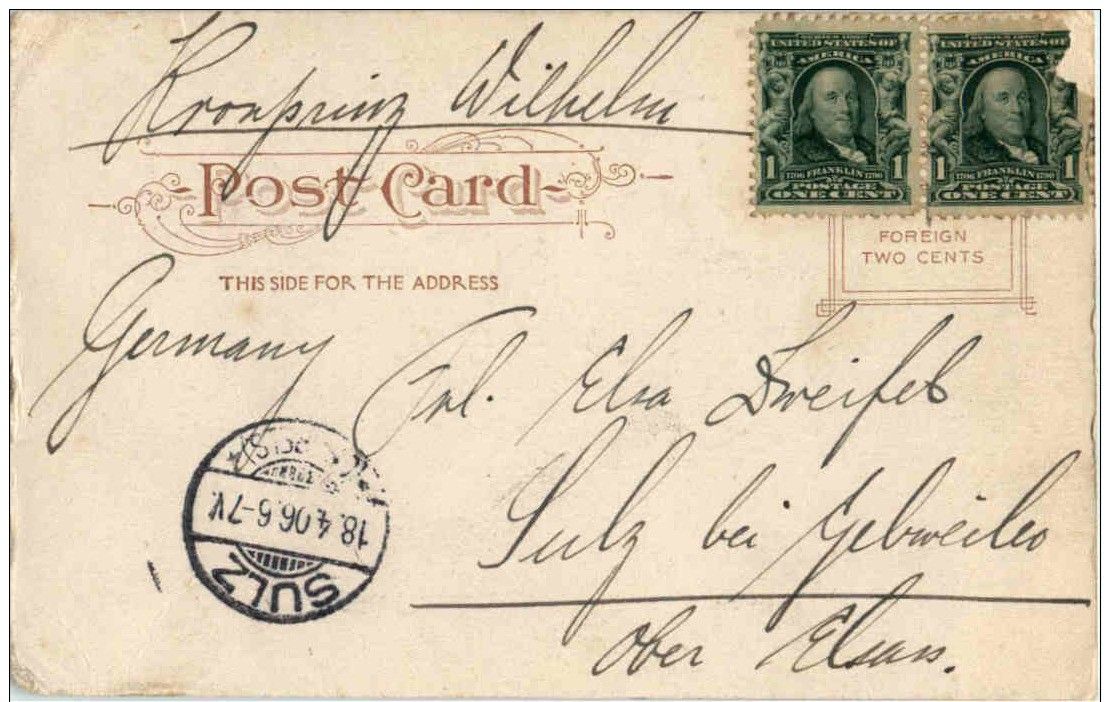 Kronprinz Wilhelm
UNITED STATES OF
AMERICA
1 1706 FRANKLIN 1790 1
POSTAGE
ONE CENT
UNITED STATES OF
AMERICA
1 1706 FRANKLIN 1790 1
POSTAGE
ONE CENT
Post Card
THIS SIDE FOR THE ADDRESS
FOREIGN
TWO CENTS
Germany
Frl. Elsa Zweifel
Sulz bei Gebweiler
Ober Elsass.
SULZ
18.4.06.6-7V.